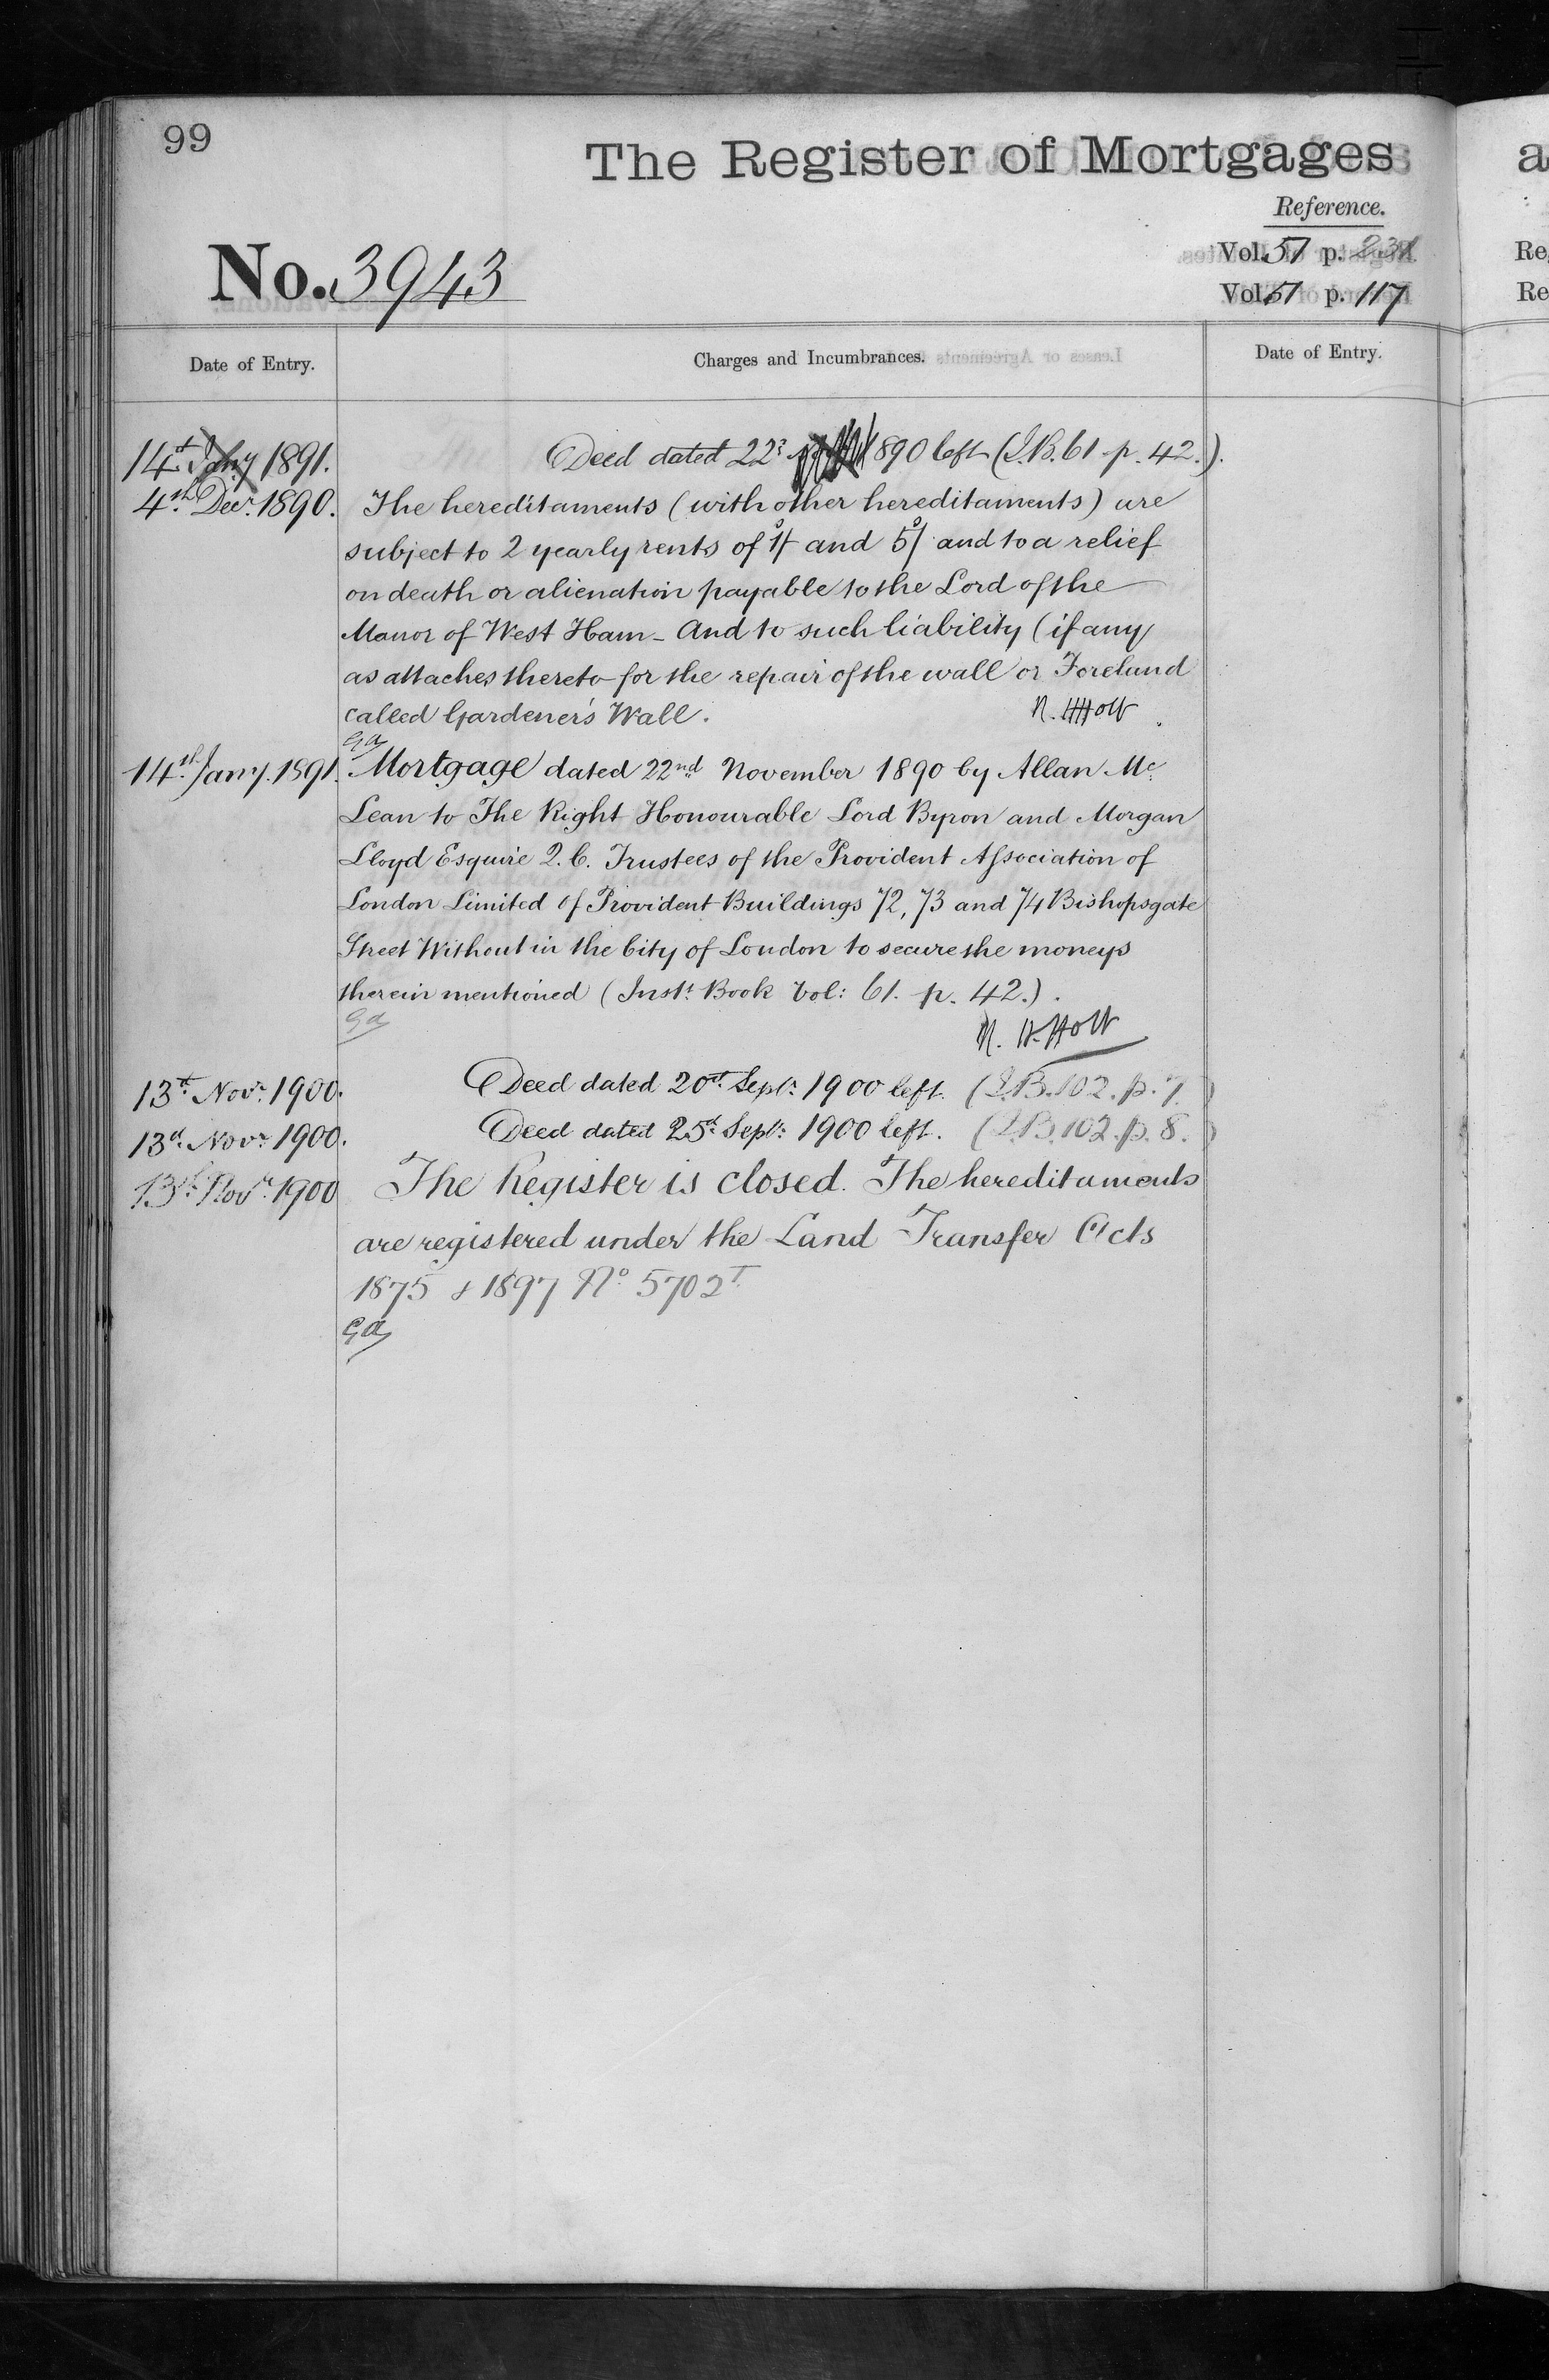 99
The Register of Mortgages
Reference.
No. 3943
Vol. 57 p. 231
Vol. 51 p. 117
Date of Entry.
Charges and Incumbrances.
Date of Entry.
14th Jany 1891.
Deed dated 22d 1890 left (I.B. 61 p. 42.).
4th Decr. 1890.
The hereditaments (with other hereditaments) are
subject to 2 yearly rents of 1/ and 5/ and to a relief
on death or alienation payable to the Lord of the
Manor of West Ham - And to such liability (if any
as attaches thereto for the repair of the wall or Foreland
called Gardener's Wall.
N. H. Holt
14th Jany. 1891.
Mortgage dated 22nd November 1890 by Allan Mc
Lean to The Right Honourable Lord Byron and Morgan
Lloyd Esquire Q.C. Trustees of the Provident Association of
London Limited of Provident Buildings 72, 73 and 74 Bishopsgate
Street Without in the City of London to secure the moneys
therein mentioned (Instt. Book Vol: 61. p. 42.).
N. H. Holt
13th Novr. 1900.
Deed dated 20th Septr. 1900 left. (I.B. 102. p. 7.)
13th Novr. 1900.
Deed dated 25th Septr. 1900 left. (I.B. 102. p. 8.)
13th Novr. 1900
The Register is closed. The hereditaments
are registered under the Land Transfer Acts
1875 & 1897 No 5702T.
a
Re
Re